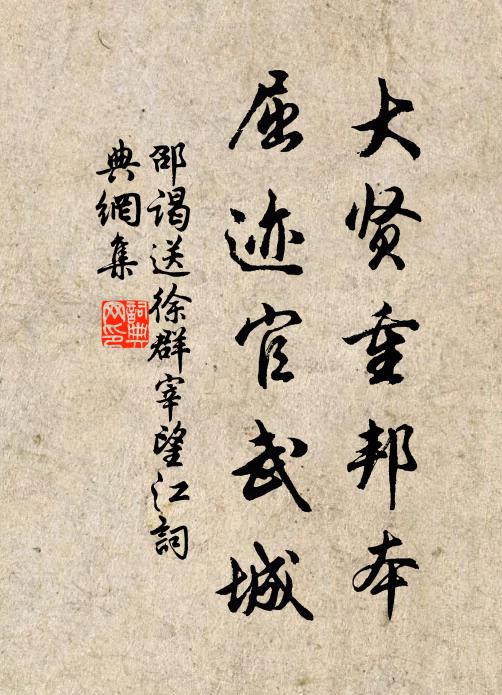 大贤重邦本
屈迹官武城
邵谒送徐群宰望江詞
典網集
詞典
网印